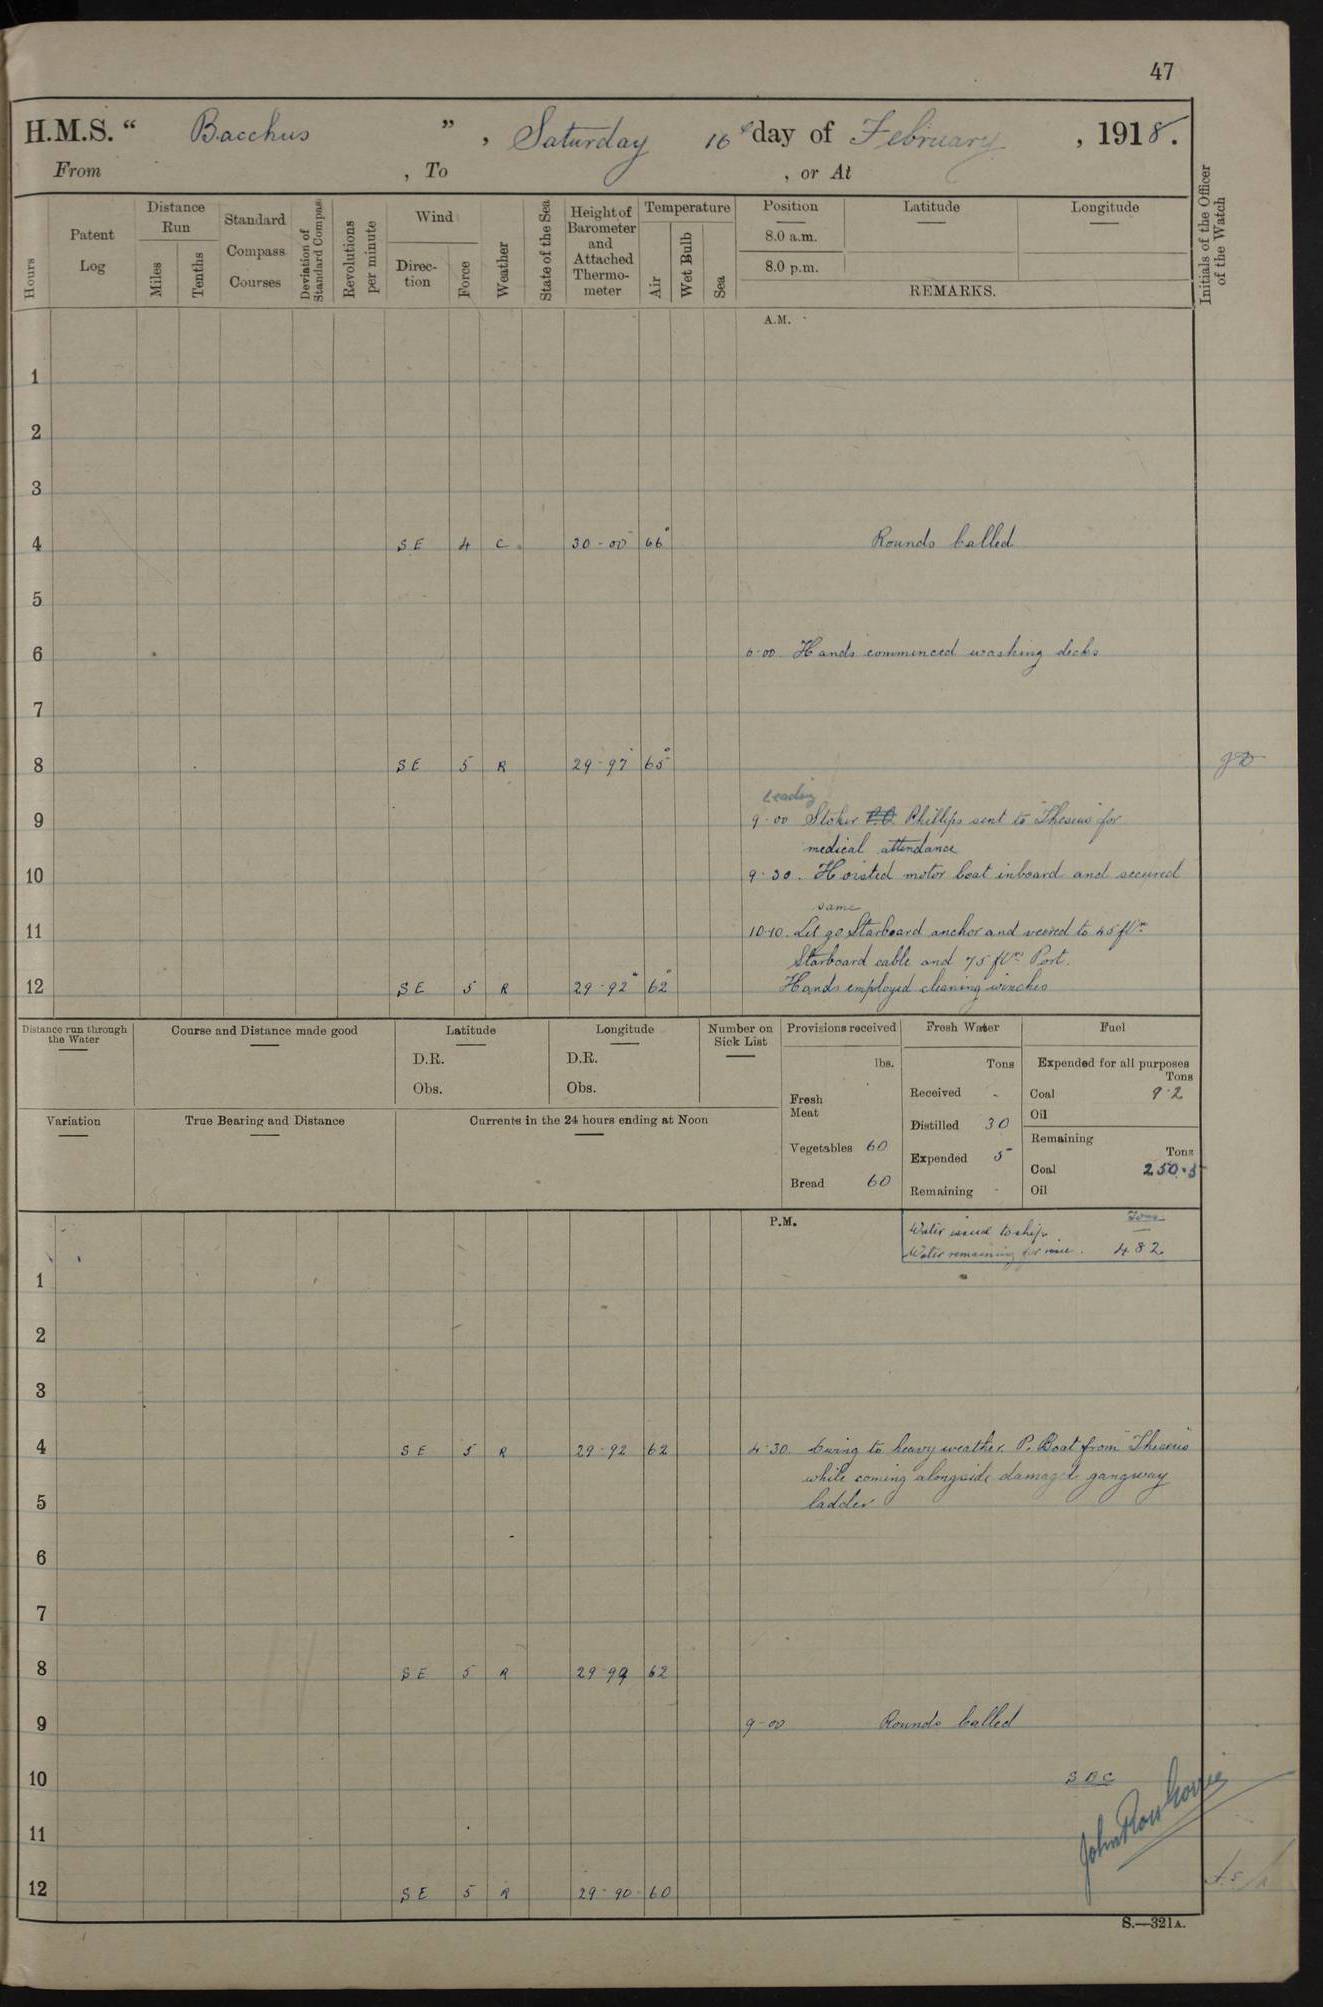 47
H.M.S. “ Bacchus ” , Saturday 16th day of February , 1918.
From , To , or At
Hours
Patent Log
Distance Run
Miles
Tenths
Standard Compass Courses
Deviation of Standard Compass
Revolutions per minute
Wind
Direc-tion
Force
Weather
State of the Sea
Height of Barometer and Attached Thermo-meter
Temperature
Air
Wet Bulb
Sea
Position
8.0 a.m.
8.0 p.m.
Latitude
Longitude
REMARKS.
Initials of the Officer of the Watch
A.M.
1
2
3
4 SE 4 C 30-00 66° Rounds Called
5
6 6-00. Hands commenced washing decks
7
8 SE 5 R 29-97 65°
Leading
9 9-00 Stoker P.O. Phillips sent to "Theseus" for
medical attendance
10 9-30. Hoisted motor boat inboard and secured
same
11 10-10. Let go Starboard anchor and veered to 45 fms
Starboard cable and 75 fms Port.
12 SE 5 R 29-92 62° Hands employed cleaning winches
Distance run through the Water
Course and Distance made good
Latitude
D.R.
Obs.
Longitude
D.R.
Obs.
Number on Sick List
Provisions received
lbs.
Fresh Meat
Vegetables 60
Bread 60
Fresh Water
Tons
Received -
Distilled 30
Expended 5
Remaining -
Fuel
Expended for all purposes
Tons
Coal 9.2
Oil
Remaining
Tons
Coal 250.5
Oil
Variation
True Bearing and Distance
Currents in the 24 hours ending at Noon
P.M.
Tons
Water issued to ships
Water remaining for issue. 482.
1
2
3
4 SE 5 R 29-92 62 4-30. Owing to heavy weather P. Boat from "Theseus"
while coming alongside damag'd gangway
5 ladder
6
7
8 SE 5 R 29-94 62
9 9-00 Rounds Called
10 SDC
John Ross Gowie
11
12 SE 5 R 29-90 60
S.—321A.